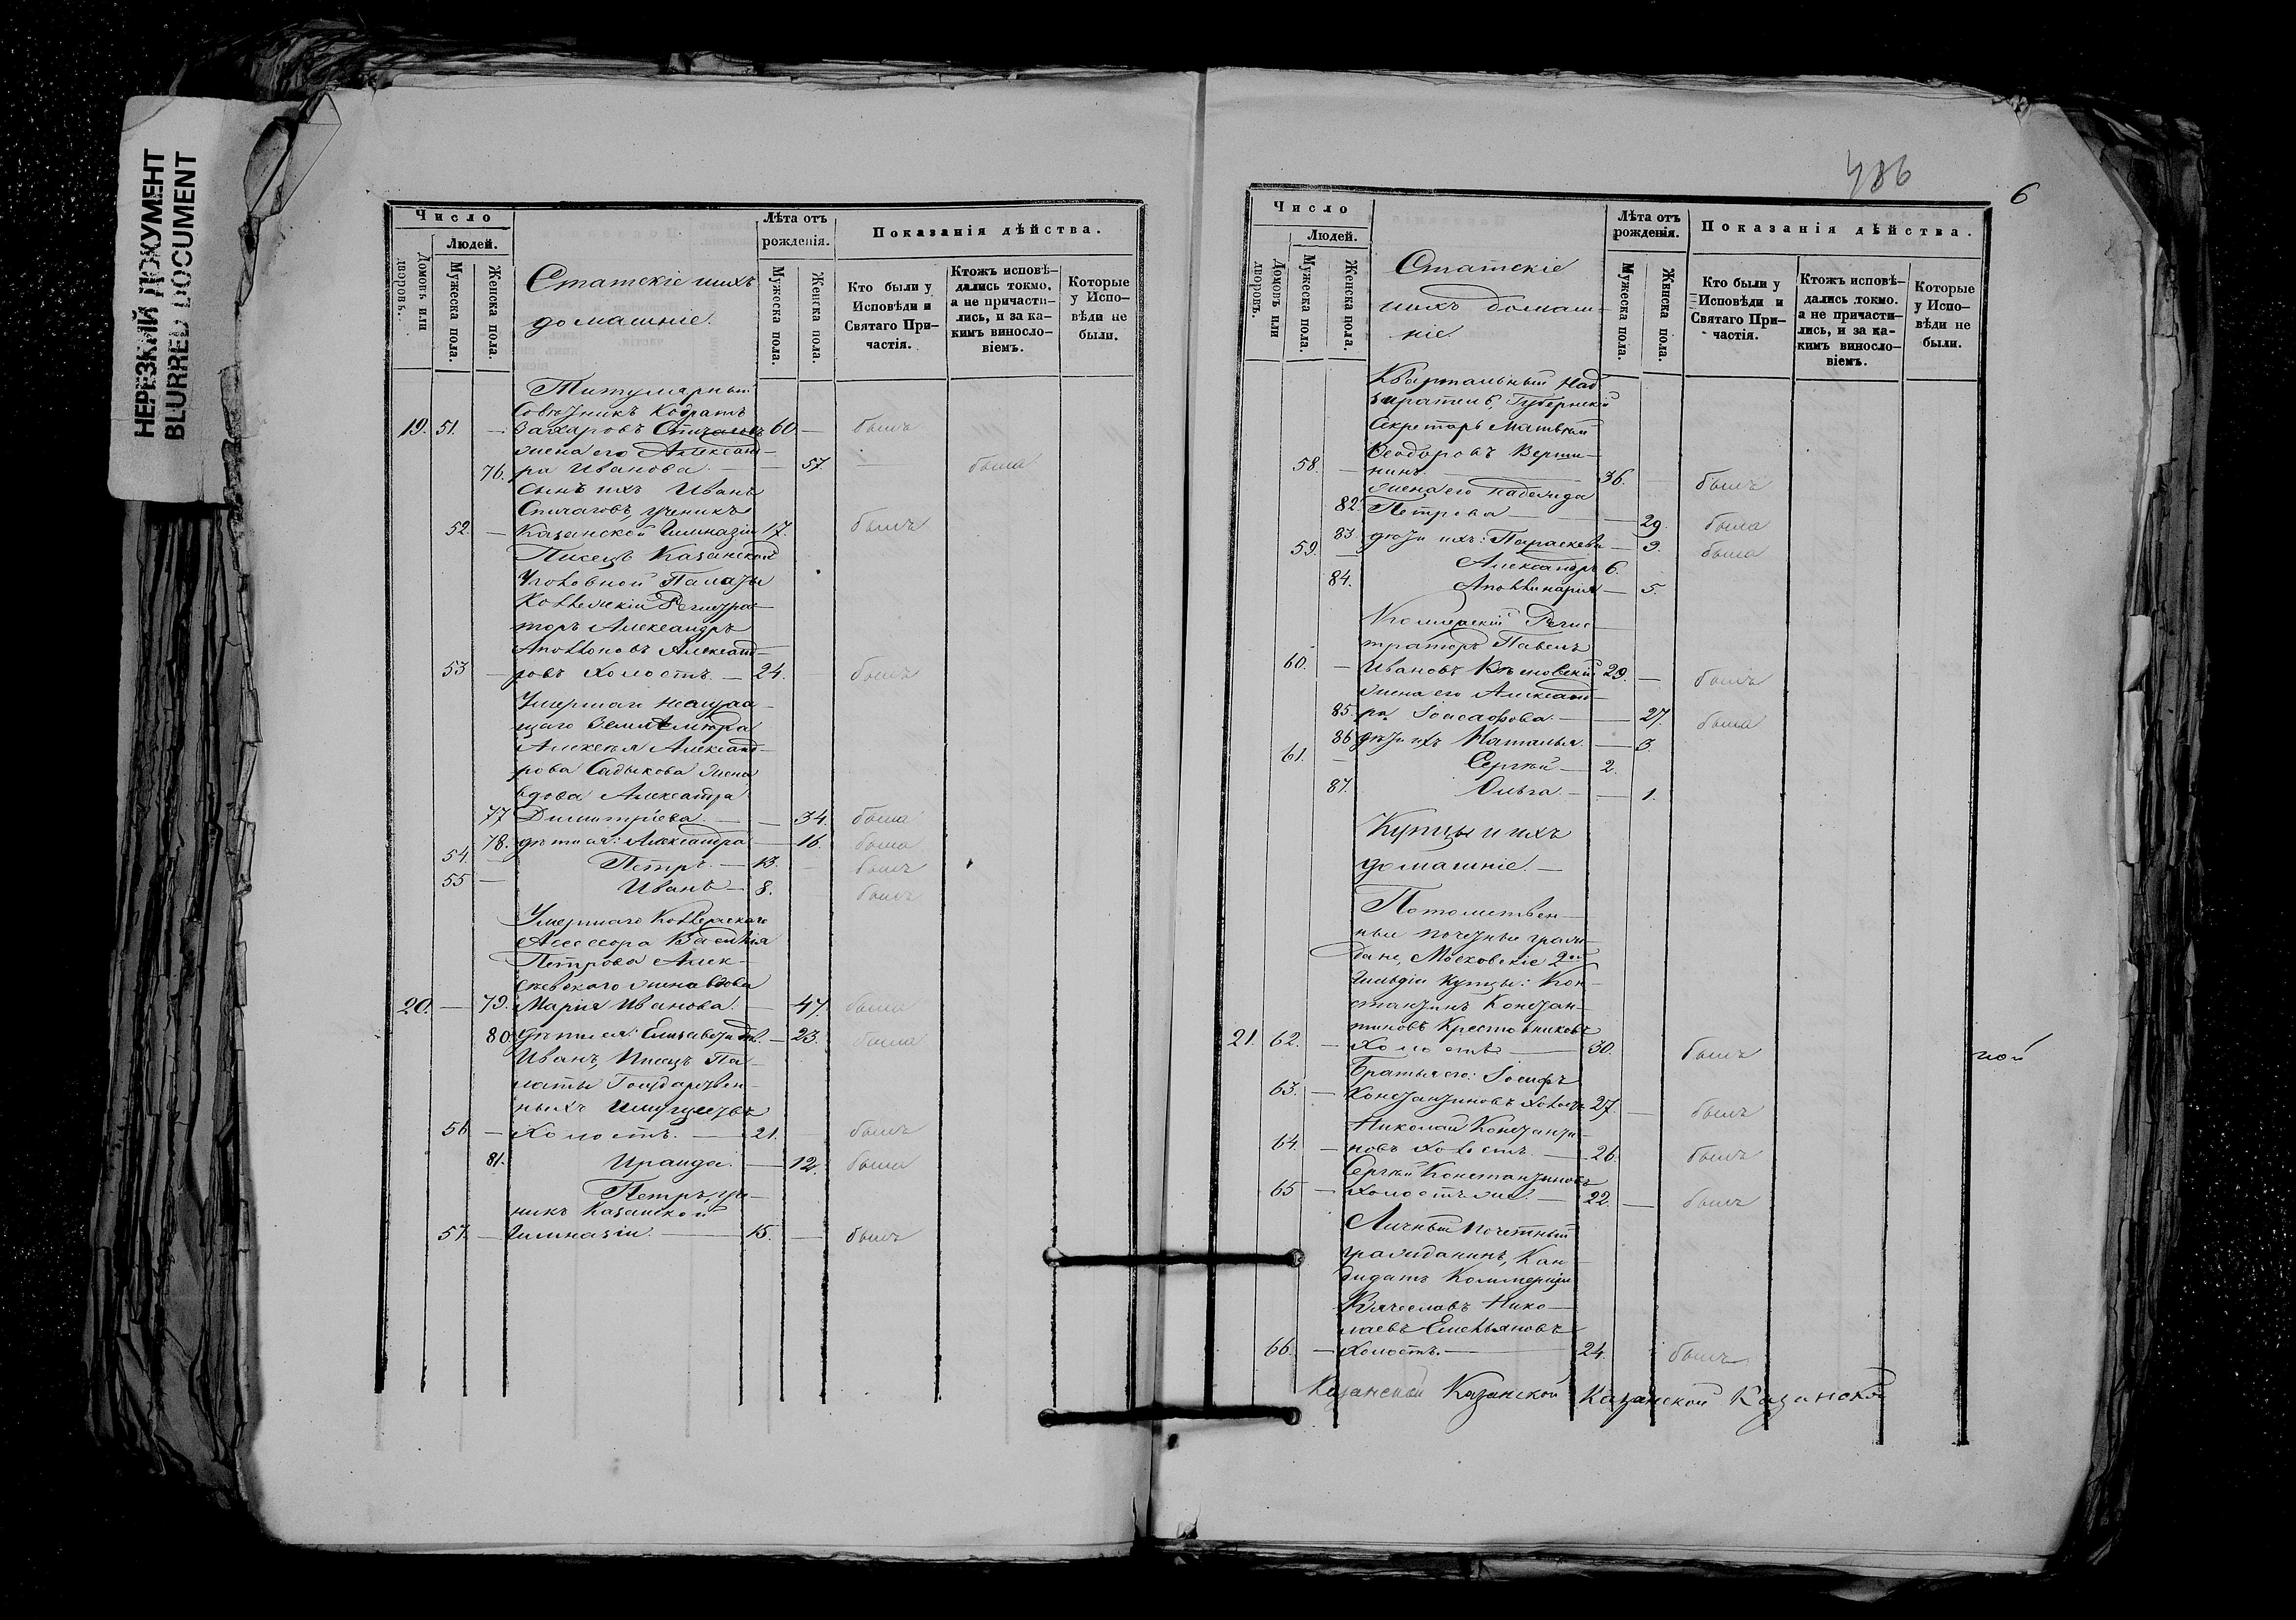 НЕРЕЗКИЙ ДОКУМЕНТ
BLURRED DOCUMENT
Число
Людей.
Домовъ или дворовъ.
Мужеска пола.
Женска пола.
Статскіе и ихъ
домашніе.
Лѣта отъ рожденія.
Мужеска пола.
Женска пола.
Показанія дѣйства.
Кто были у Исповѣди и Святаго Причастія.
Ктожъ исповѣдались токмо, а не причастились, и за какимъ винословіемъ.
Которые у Исповѣди не были.
Титулярный
Совѣтникъ Кодратъ
19. 51. — Захаровъ 60. — былъ
жена его Александ-
76. ра Иванова. — — 57. — была
сынъ ихъ Иванъ
ученикъ
52. — Казанской Гимназіи 17. былъ
Писецъ Казанской
Уголовной Палаты
Коллежскій Регистра-
торъ Александръ
Аполлоновъ Александ-
53 — ровъ холостъ. — 24. — былъ
Умершаго
щаго Землемѣра
Алексѣя Александ-
рова Садыкова жена
вдова Александра
77 Димитріева. — — 34. была
78. дѣти ея: Александра — 16. была
54. — Петръ. — 13. — былъ
55 — Иванъ — 8. — былъ
Умершаго Коллежскаго
Ассессора Василія
Петрова Алек-
сѣевскаго жена вдова
20. — 79. Марія Иванова. — 47. была
80. дѣти ея: Елисавета дѣв. — 23. была
Иванъ, Писецъ Па-
латы Государствен-
ныхъ Имуществъ
56 — Холостъ. — 21. — былъ
81. Ираида. — 12. была
Петръ, уче-
никъ Казанской
57. — Гимназіи. — 15. — былъ
486
6
Число
Людей.
Домовъ или дворовъ.
Мужеска пола.
Женска пола.
Статскіе
и ихъ домаш-
ніе.
Лѣта отъ рожденія.
Мужеска пола.
Женска пола.
Показанія дѣйства.
Кто были у Исповѣди и Святаго Причастія.
Ктожъ исповѣдались токмо, а не причастились, и за какимъ винословіемъ.
Которые у Исповѣди не были.
Квартальный Над-
зиратель, Губернскій
Секретарь Матвѣй
Ѳеодоровъ Верши-
58. — нинъ. — 36. былъ
жена его Надежда
82. Петрова — — 29. была
83. дѣти ихъ: Параскева — 9. была
59. — Александръ 6.
84. Аполлинарія — 5.
Коллежскій Регис-
траторъ Павелъ
60. — Ивановъ 29. — былъ
жена его Александ-
85. ра Іоасафова. — — 27. была
86 дѣти ихъ Наталья. — 3.
61. — Сергѣй — 2.
87. Ольга. — — 1.
Купцы и ихъ
домашніе. —
Потомствен-
ные почетные граж-
дане, Московскіе 2ой
Гильдіи Купцы: Кон-
стантинъ Констан-
тиновъ Крестовниковъ
21. 62. — Холостъ — 30. былъ
Братья его: Іосифъ
63. — Константиновъ холостъ 27. — былъ
Николай Константи-
64. — новъ холостъ. — 26. былъ
Сергѣй Константиновъ
65 — холостъ же. — 22. — былъ
Личный Почетный
гражданинъ, Кан-
дидатъ Коммерціи
Вячеславъ Нико-
лаевъ Емельяновъ
66. — холостъ. — 24. былъ
ной
Казанской Казанской Казанской Казанской